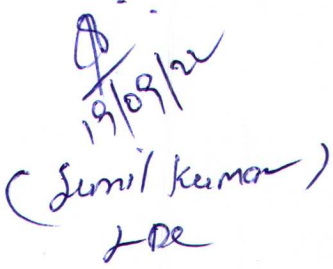 19/09/22
(Sunil Kumar)
LDC